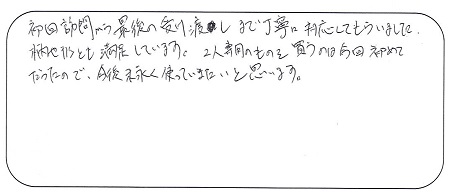 初回訪問から最後の受け渡しまで丁寧に対応してもらいました。
柄も形とも満足しています。2人専用のものを買うのは今回初めて
だったので、今後末永く使っていきたいと思います。